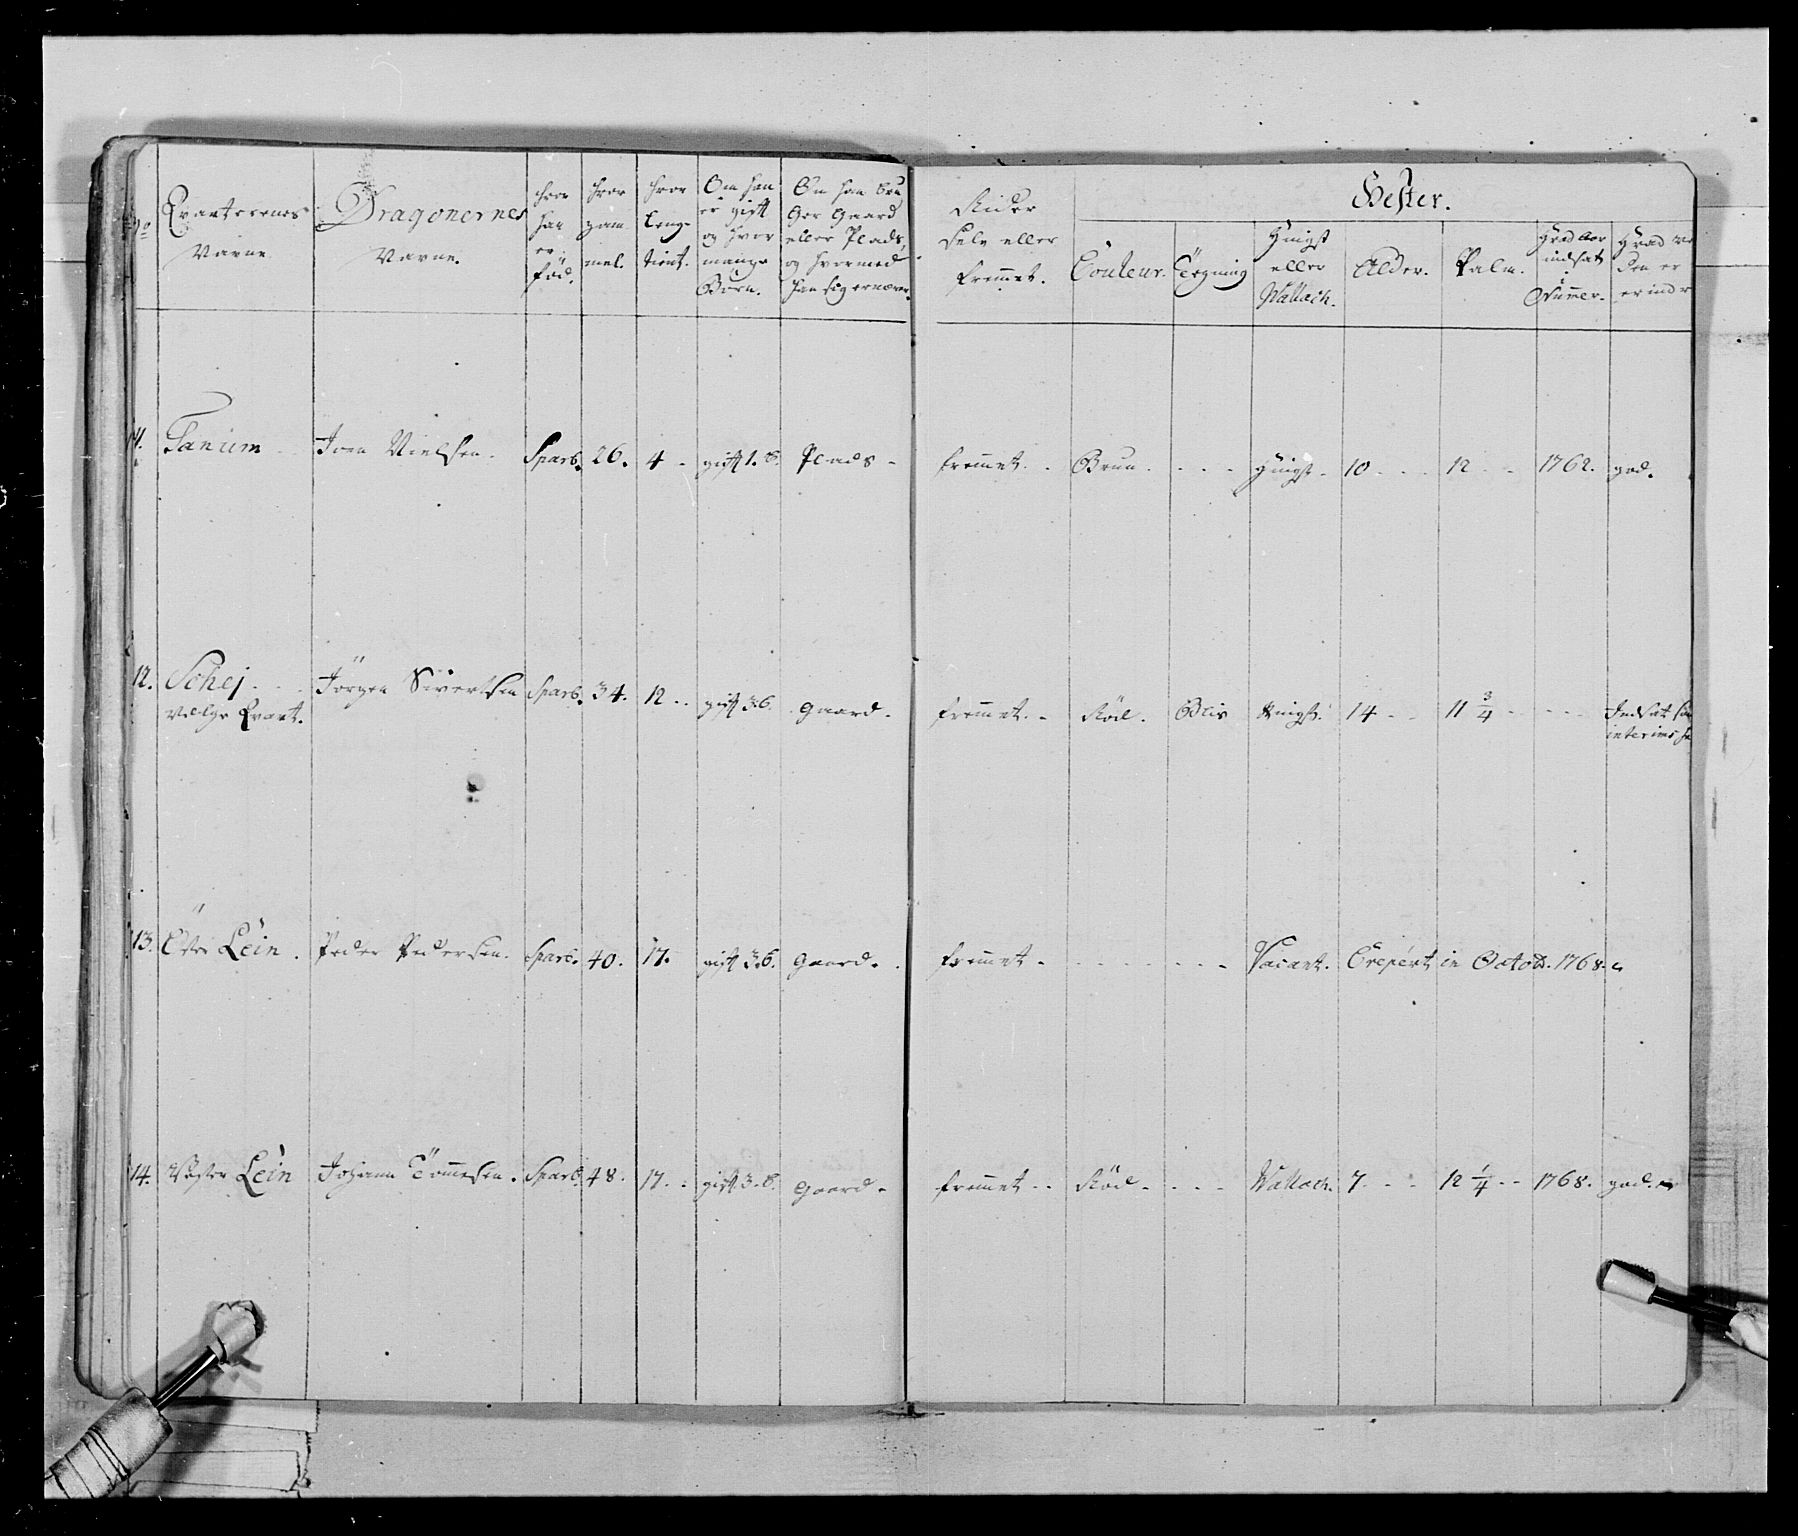 No
Qvarterernes
Navne
Dragonernes
Navne.
hvor
han
er
född.
hvor
gam
mel.
hvor
lenge
tient.
Om han
er gift
og hvor
mange
Börn.
Om han bru
ger Gaard
eller Plads,
og hvormed
han sig ernærer.
Rider
selv eller
fremmet.
Hester.
Couleur.
Tegning
Hingst
eller
Wallach.
Alder.
Palm.
Hvad Aar
indsat
i
Nummer.
Hvad
den er
11. Tanum Iven Nielsen. Sparb. 26. 4 gift 1. b. Plads fremmet. Brun. Hingst. 10 12 1762. god.
12. Schej Jörgen Sivertsen Sparb. 34. 12 gift 3. b. Gaard. fremmet. Röd. Blis Hingst. 14 11 3/4 Indsat
Velge Qvart. interims
13. Öster Lein. Peder Pedersen. Sparb. 40. 17. gift 3. b. Gaard. fremmet Vacant. Crepert in Octob. 1768.
14. Vester Lein Johann Tömmesen. Sparb. 48. 17. gift 3. b. Gaard fremmet Röd Wallach. 7 12 1/4 1768. god.